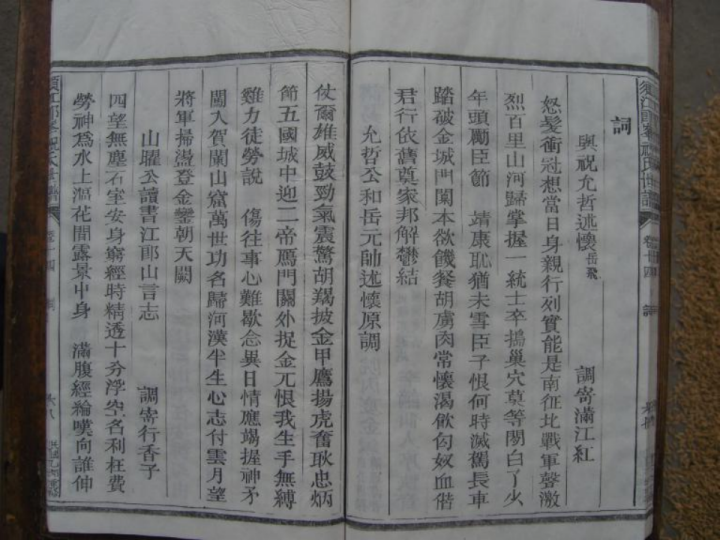 詞
與祝允哲述懷 岳飛 調寄滿江紅
怒髮衝冠想當日身親行列實能是南征北戰軍聲激
烈百里山河歸掌握一統士卒搗巢穴莫等閒白了少
年頭勵臣節 靖康耻猶未雪臣子恨何時滅駕長車
踏破金城門闕本欲饑餐胡虜肉常懷渴飲匈奴血偕
君行依舊奠家邦解鬱結
允哲公和岳元帥述懷原調
仗爾雄威鼓勁氣震驚胡羯披金甲鷹揚虎奮耿忠炳
節五國城中迎二帝鴈門關外捉金兀恨我生手無縛
雞力徒勞說 傷往事心難歇念異日情應竭握神矛
闖入賀蘭山窟萬世功名歸河漢半生心志付雲月望
將軍掃盪登金鑾朝天闕
山曜公讀書江郎山言志 調寄行香子
四望無塵石室安身窮經時精透十分浮空名利枉費
勞神爲水上漚花間露景中身 滿腹經綸嘆向誰伸
須江郎峯祝氏世譜
須江郎峯祝氏世譜